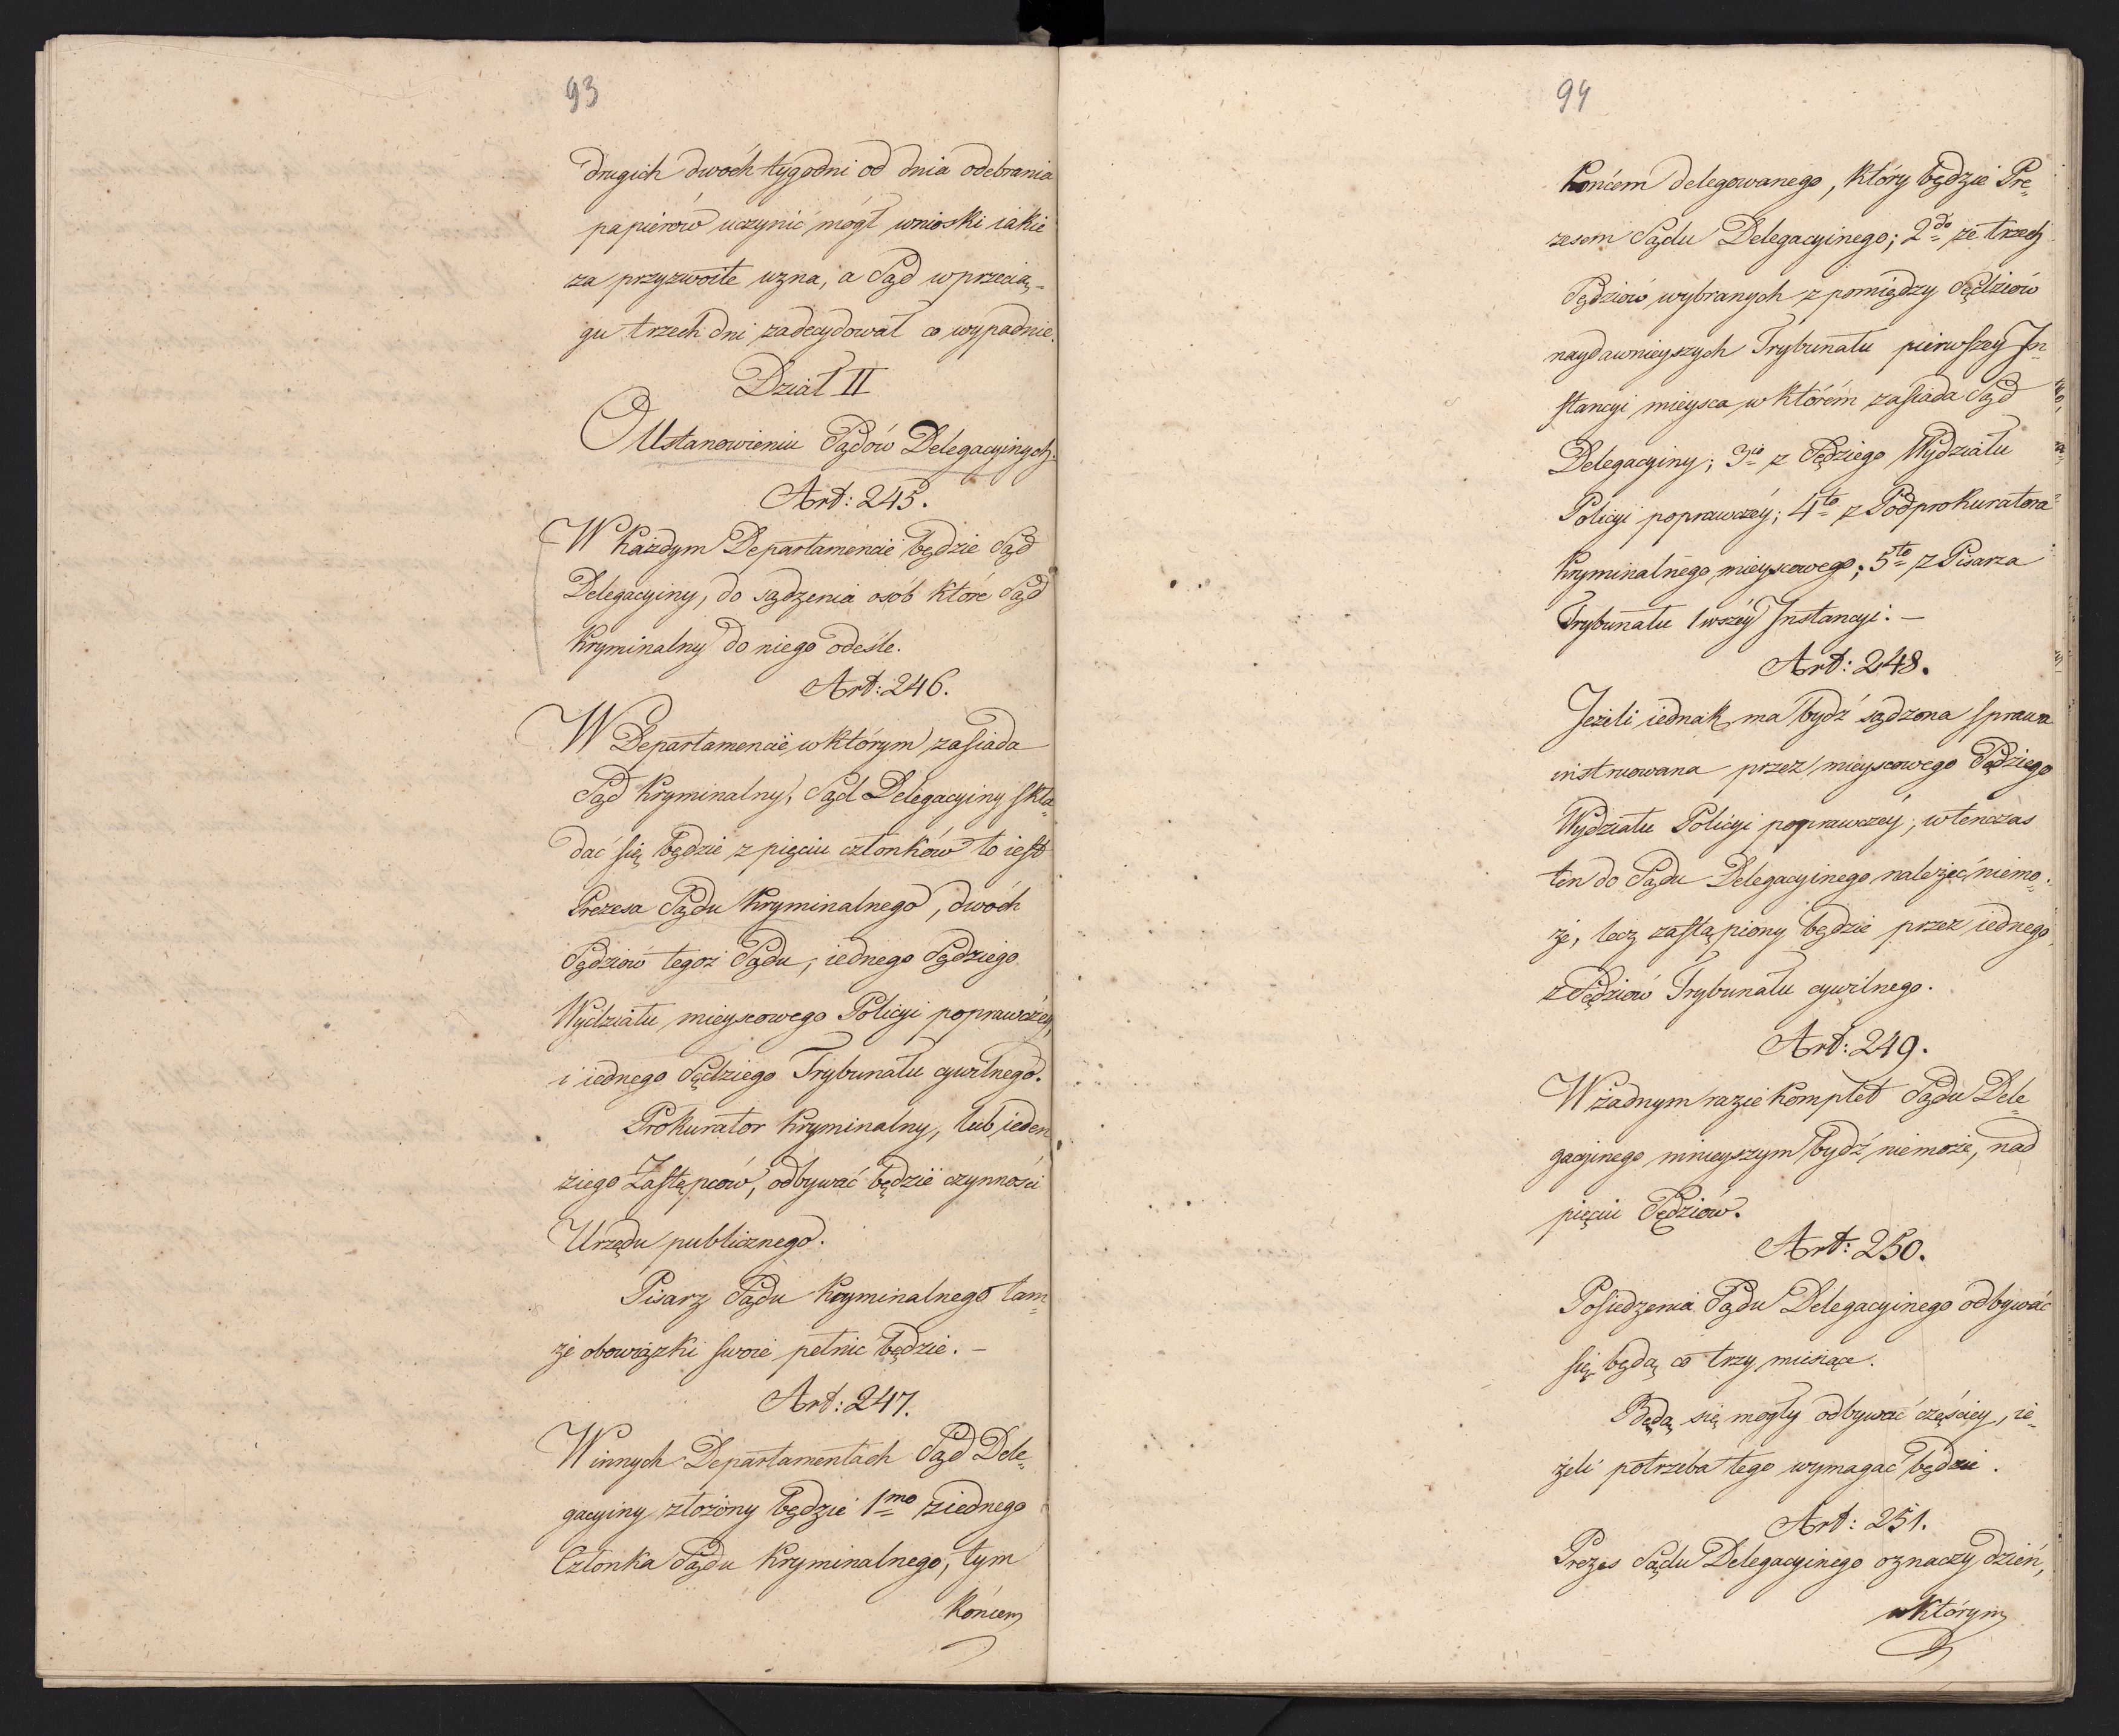 93
drugich dwóch tygodni od dnia odebrania
papierów uczynić mógł wnioski iakie
za przyzwoite uzna, a Sąd w przecią-
gu trzech dni zadecydował co wypadnie.
Dział II
O Ustanowieniu Sądów Delegacyinych.
Art: 245.
W każdym Departamencie będzie Sąd
Delegacyiny, do sądzenia osób które Sąd
Kryminalny do niego odeśle.
Art: 246.
W Departamencie w którym zasiada
Sąd Kryminalny, Sąd Delegacyiny skła-
dać się będzie z pięciu członków to iest
Prezesa Sądu Kryminalnego, dwóch
Sędziów tegoż Sądu, iednego Sędziego
Wydziału mieyscowego Policyi poprawczéy,
i iednego Sędziego Trybunału cywilnego.
Prokurator Kryminalny, lub ieden
ziego Zastępców, odbywać będzie czynności
Urzędu publicznego.
Pisarz Sądu Kryminalnego tam-
że obowiązki swoie pełnic będzie. -
Art: 247.
W innych Departamentach Sąd Dele-
gacyiny złożony będzie 1mo z iednego
Członka Sądu Kryminalnego, tym
końcem
94
końcem delegowanego, który będzie Pre-
zesem Sądu Delegacyinego; 2do ze trzech
Sędziów wybranych z pomiędzy Sędziów
naydawnieyszych Trybunału pierwszey In-
stancyi mieysca w którém zasiada Sąd
Delegacyiny; 3io z Sędziego Wydziału
Policyi poprawczéy; 4to z Podprokuratora
Kryminalnego mieyscowego; 5to z Pisarza
Trybunału 1wszéy Instancyi. -
Art: 248.
Jeżeli iednak ma bydź sądzona sprawa
instruowana przez mieyscowego Sędziego
Wydziału Policyi poprawczéy, wtenczas
ten do Sądu Delegacyinego należeć niemo-
że, lecz zastąpiony będzie przez iednego
z Sędziów Trybunału cywilnego.
Art: 249.
W żadnym razie komplet Sądu Dele-
gacyinego mnieyszym bydź niemoże, nad
pięciu Sędziów.
Art: 250.
Posiedzenia Sądu Delegacyinego odbywać
się będą co trzy miesiące.
Będą się mogły odbywać częściey, ie-
żeli potrzeba tego wymagać będzie.
Art: 251.
Prezes Sądu Delegacyinego oznaczy dzień,
w którym